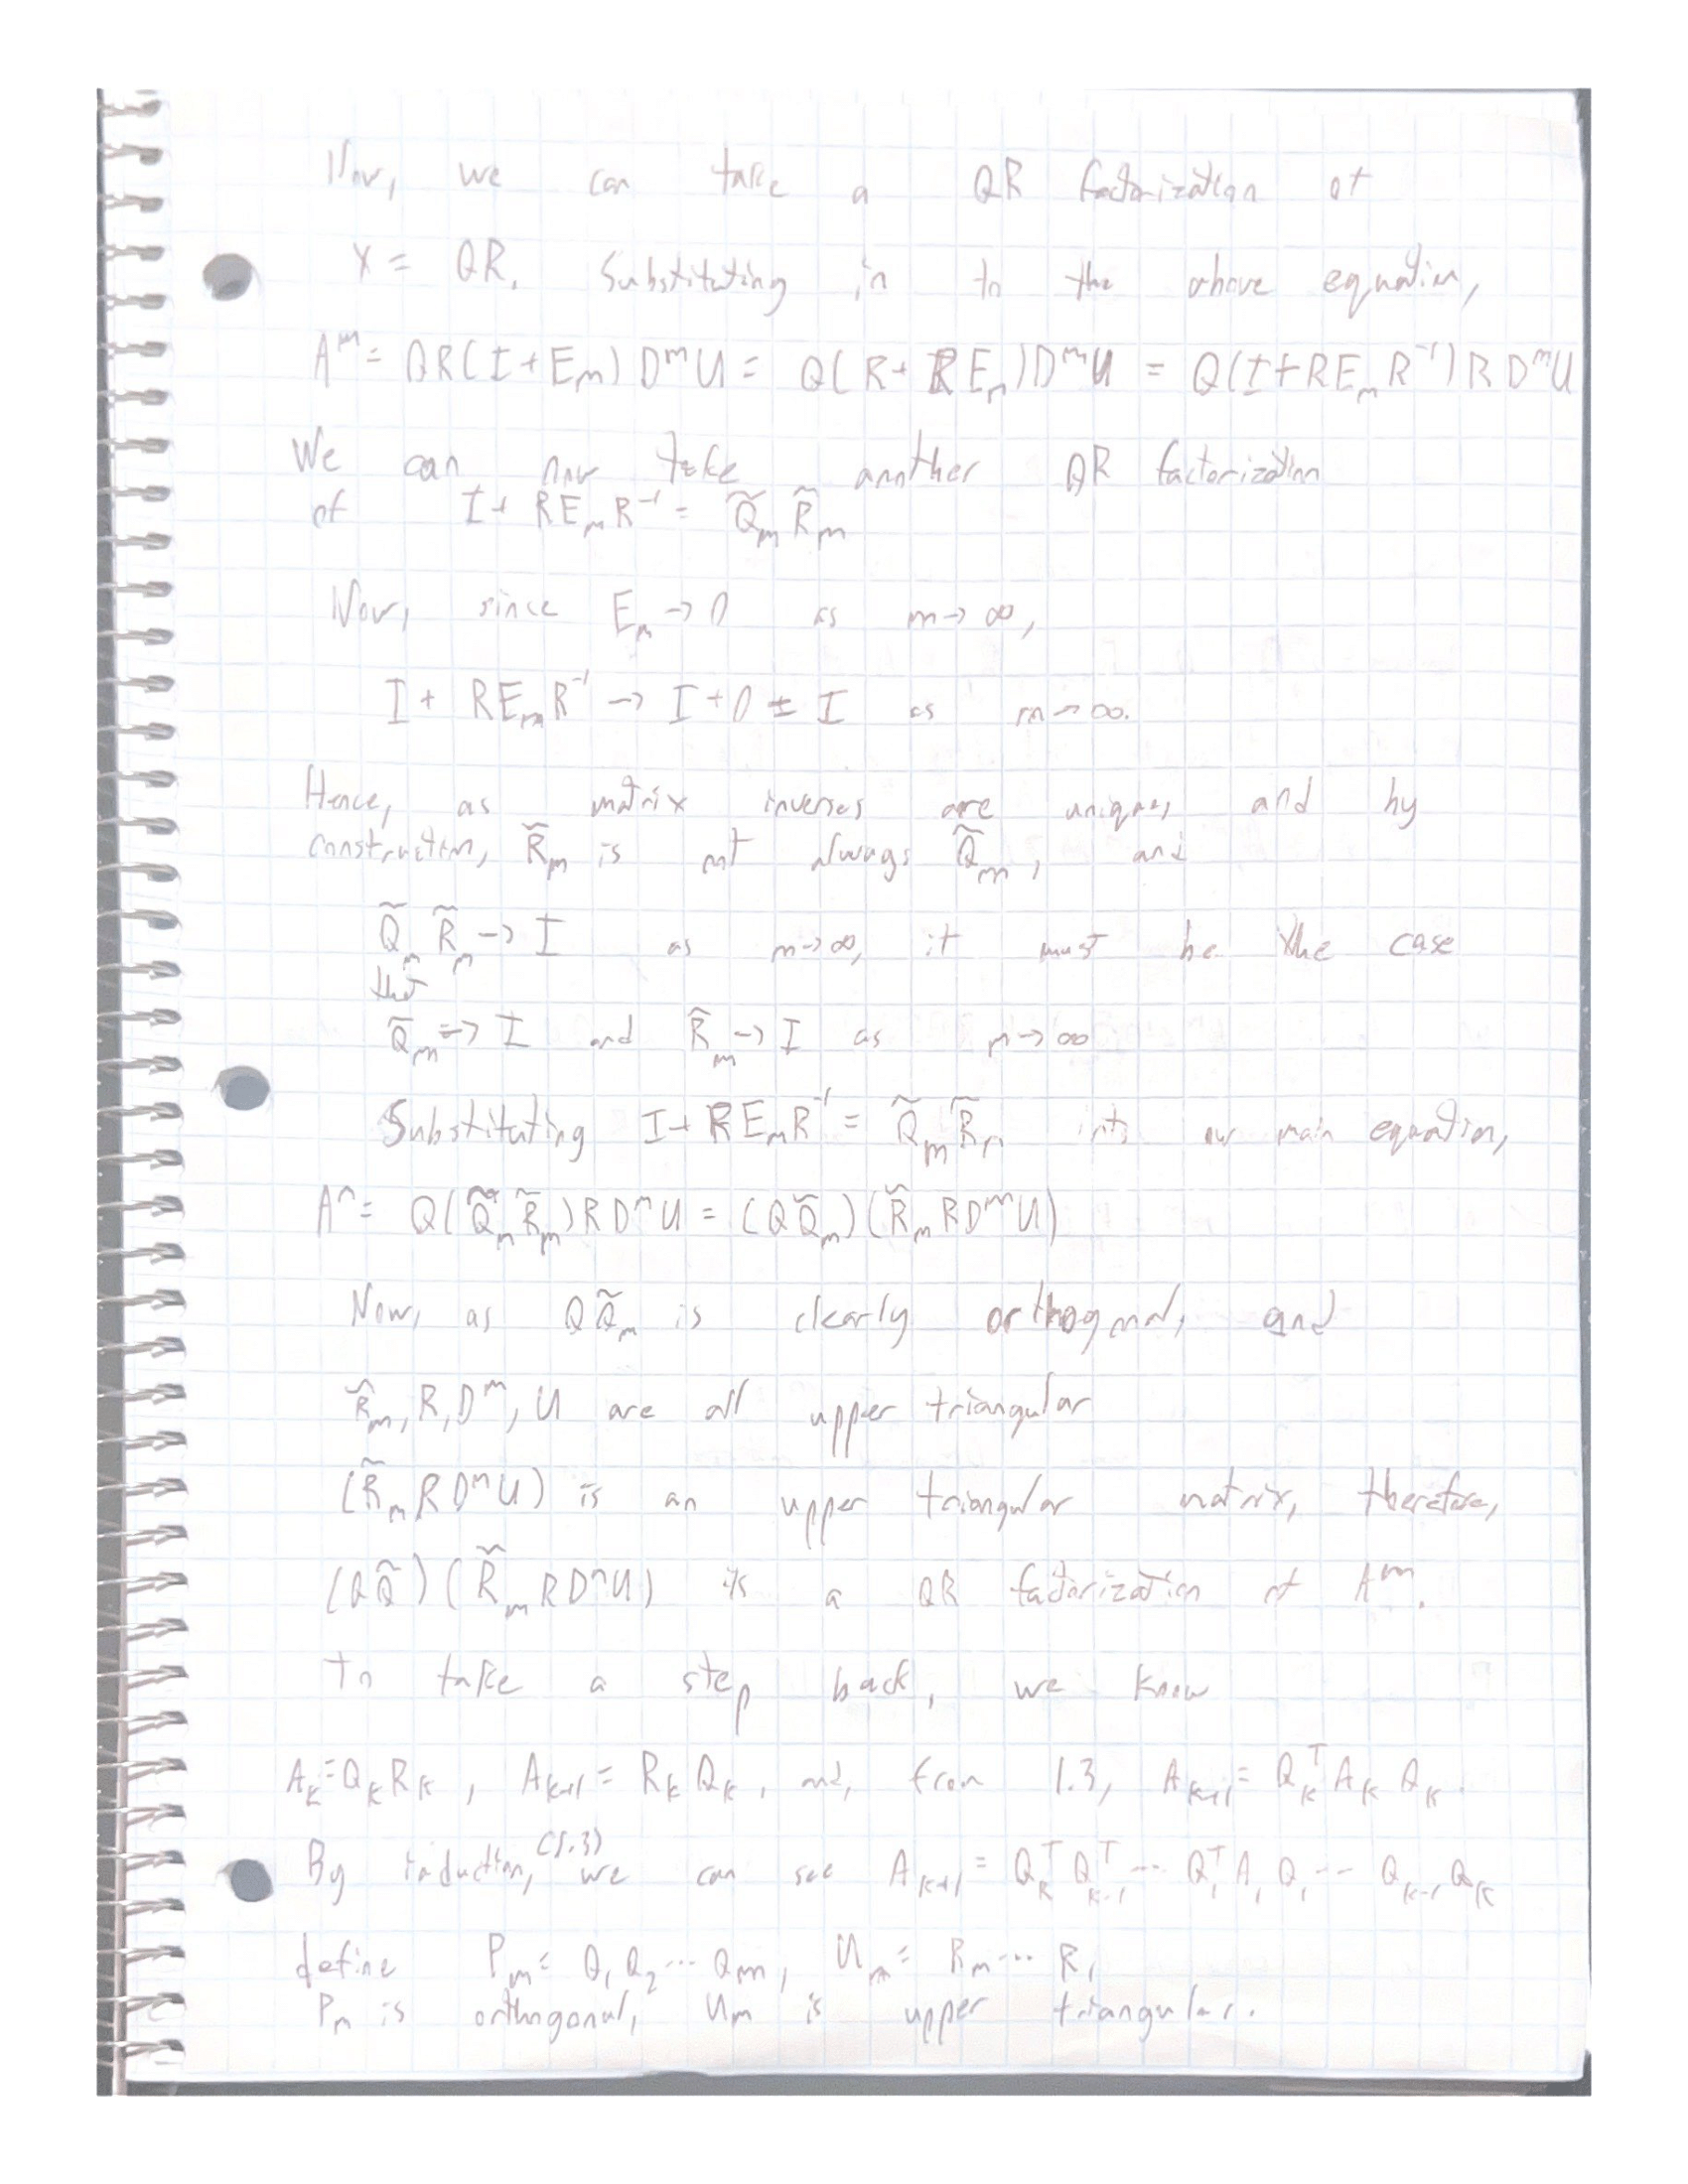 Now, we can take a QR factorization of
X = QR. Substituting in to the above equation,
A^m = QR(I + E_m) D^m U = Q(R + R E_m) D^m U = Q(I + R E_m R^-1) R D^m U
We can now take another QR factorization
of I + R E_m R^-1 = Q̃_m R̃_m
Now, since E_m → 0 as m → ∞,
I + R E_m R^-1 → I + 0 = I as m → ∞.
Hence, as matrix inverses are unique, and by
construction, R̃_m is not always Q̃_m, and
Q̃_m R̃_m → I as m → ∞, it must be the case
that
Q̃_m → I and R̃_m → I as m → ∞
Substituting I + R E_m R^-1 = Q̃_m R̃_m into our main equation,
A^m = Q(Q̃_m R̃_m) R D^m U = (Q Q̃_m)(R̃_m R D^m U)
Now, as Q Q̃_m is clearly orthogonal, and
R̃_m, R, D^m, U are all upper triangular
(R̃_m R D^m U) is an upper triangular matrix, therefore,
(Q Q̃)(R̃_m R D^m U) is a QR factorization of A^m.
To take a step back, we know
A_k = Q_k R_k, A_k+1 = R_k Q_k, and, from 1.3, A_k+1 = Q_k^T A_k Q_k.
By induction, (1.3) we can see A_k+1 = Q_k^T Q_k-1^T ... Q_1^T A_1 Q_1 ... Q_k-1 Q_k
define P_m = Q_1 Q_2 ... Q_m, U_m = R_m ... R_1
P_m is orthogonal, U_m is upper triangular.